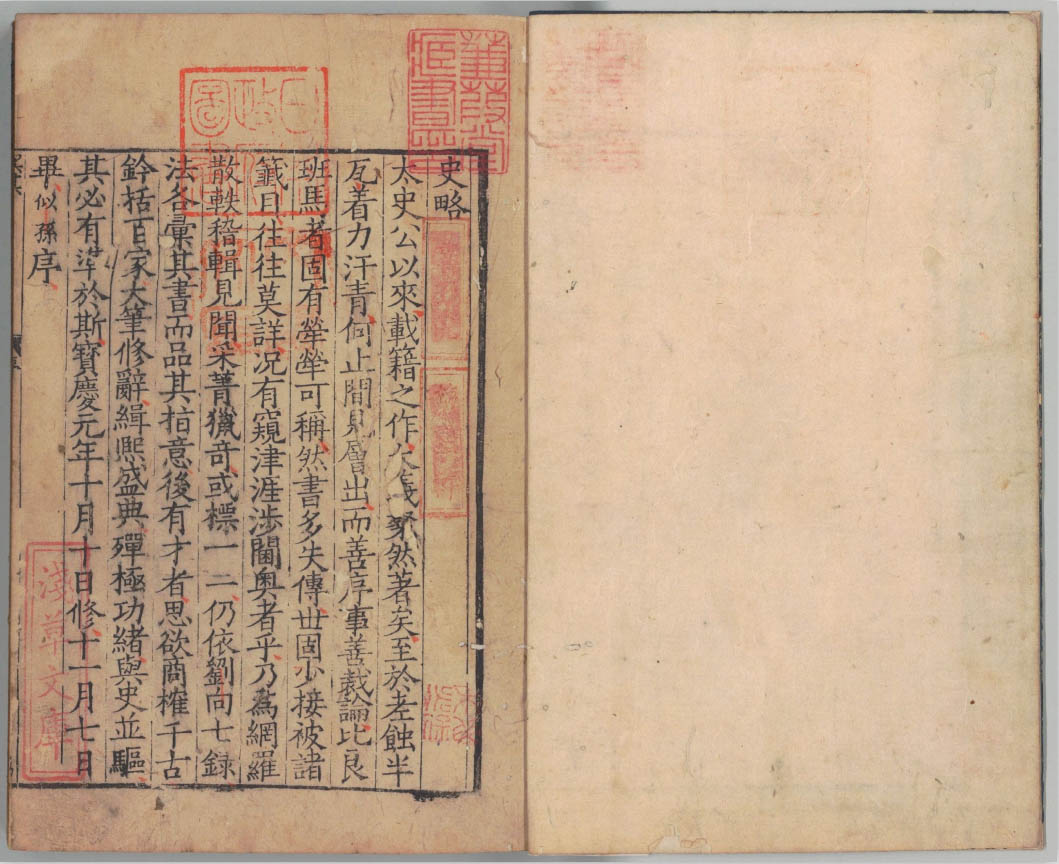 史略
太史公以來載籍之作大義粲然著矣至於老蝕半
瓦着力汗青何止間見層出而善序事善裁論比良
班馬者固有犖犖可稱然書多失傳世固少接被諸
籤目往往莫詳况有窺津涯涉閫奥者乎乃爲網羅
散軼稽輯見聞采菁獵奇或標一二仍依劉向七録
法各彙其書而品其指意後有才者思欲商榷千古
鈐括百家大筆修辭緝熙盛典殫極功緒與史並驅
其必有凖於斯寶慶元年十月十日修十一月七日
畢似孫序
蒹葭堂
藏書印
淺草文庫